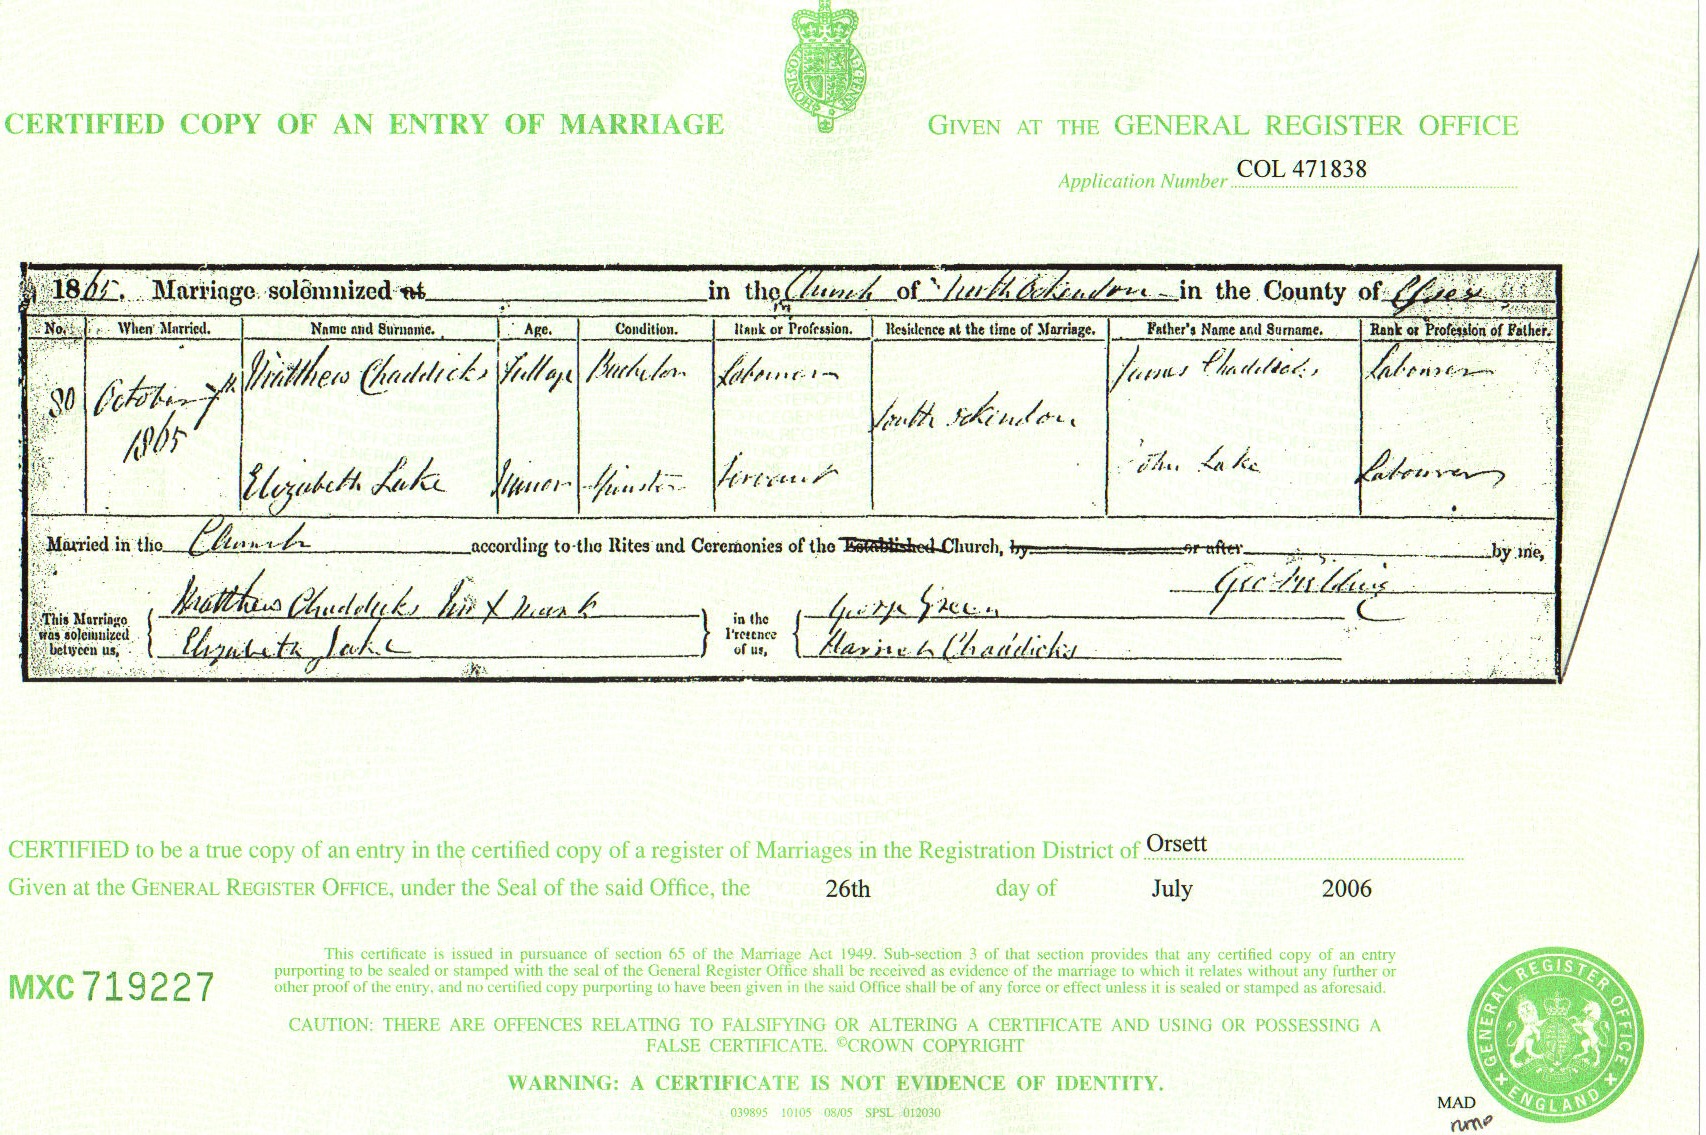 CERTIFIED COPY OF AN ENTRY OF MARRIAGE
GIVEN AT THE GENERAL REGISTER OFFICE
Application Number COL 471838
1865. Marriage solemnized at in the Church of North Ockendon in the County of Essex
No. When Married. Name and Surname. Age. Condition. Rank or Profession. Residence at the time of Marriage. Father's Name and Surname. Rank or Profession of Father.
80 October 7th 1865 Matthew Chaddicks Full age Bachelor Labourer South Ockendon James Chaddicks Labourer
Elizabeth Lake Minor Spinster Servant John Lake Labourer
Married in the Church according to the Rites and Ceremonies of the Established Church, by or after by me,
Geo
This Marriage was solemnized between us, Matthew Chaddicks his X mark in the Presence of us, George Green
Elizabeth Lake Harriet Chaddicks
CERTIFIED to be a true copy of an entry in the certified copy of a register of Marriages in the Registration District of Orsett
Given at the GENERAL REGISTER OFFICE, under the Seal of the said Office, the 26th day of July 2006
MXC 719227
This certificate is issued in pursuance of section 65 of the Marriage Act 1949. Sub-section 3 of that section provides that any certified copy of an entry
purporting to be sealed or stamped with the seal of the General Register Office shall be received as evidence of the marriage to which it relates without any further or
other proof of the entry, and no certified copy purporting to have been given in the said Office shall be of any force or effect unless it is sealed or stamped as aforesaid.
CAUTION: THERE ARE OFFENCES RELATING TO FALSIFYING OR ALTERING A CERTIFICATE AND USING OR POSSESSING A
FALSE CERTIFICATE. ©CROWN COPYRIGHT
WARNING: A CERTIFICATE IS NOT EVIDENCE OF IDENTITY.
039895 10105 08/05 SPSL 012030
GENERAL REGISTER OFFICE
ENGLAND
MAD